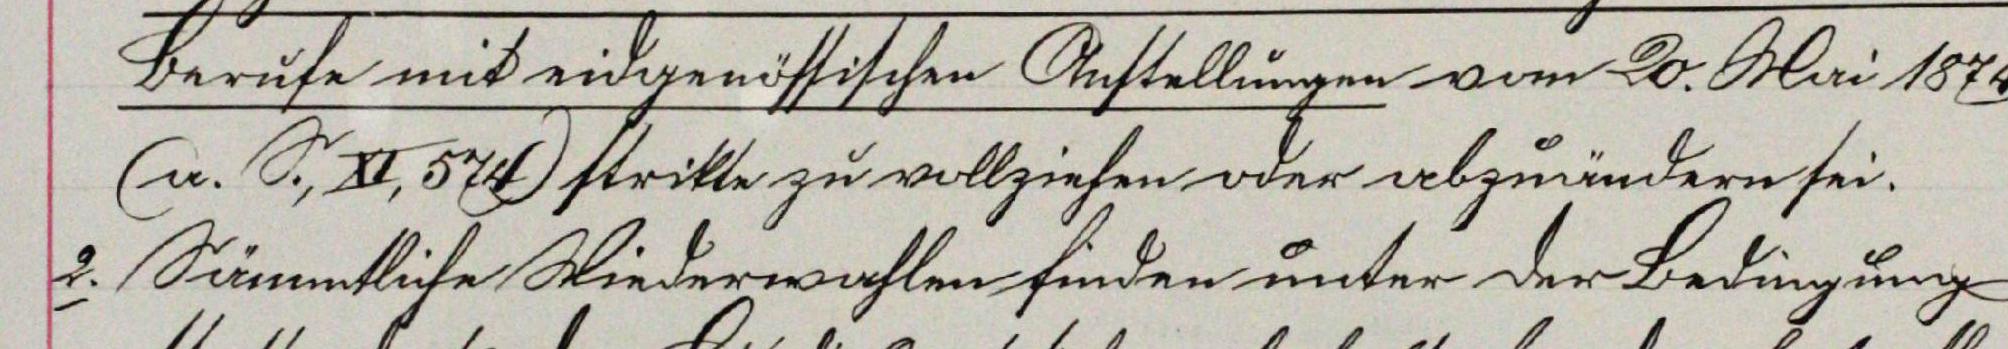 Berufe mit eidgenössischen Anstellungen vom 20. Mai 1874
(a. S., XI, 574) strikte zu vollziehen oder abzuändern sei.
2. Sämmtliche Wiederwahlen finden unter der Bedingung